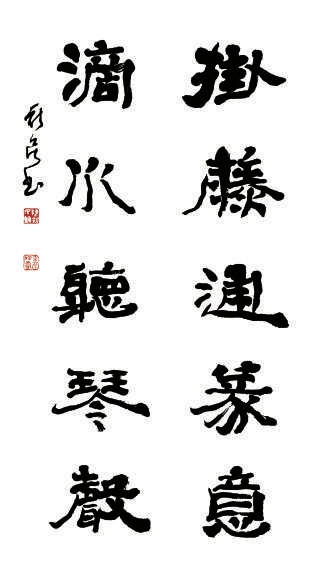 掛藤通篆意
滴水聽琴聲